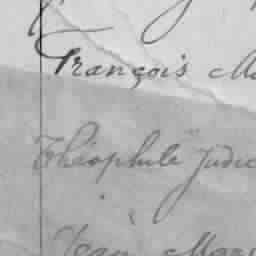 François Ma
Théophile Judic
Jean Marc